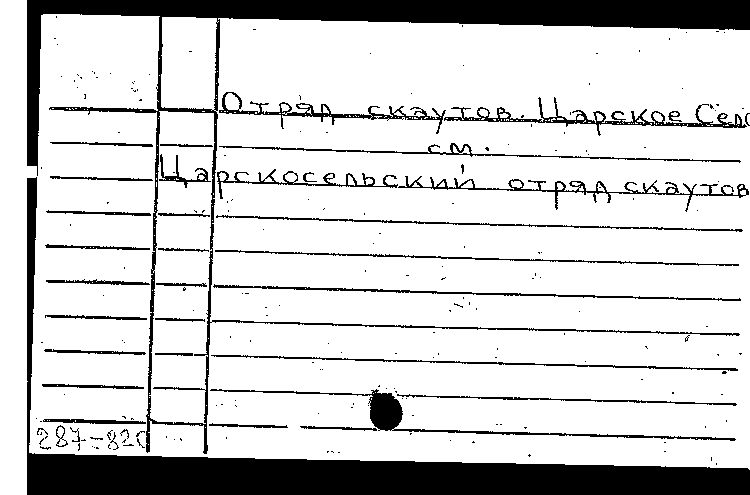 Отряд скаутов. Царское Село
см.
Царскосельский отряд скаутов
287-820